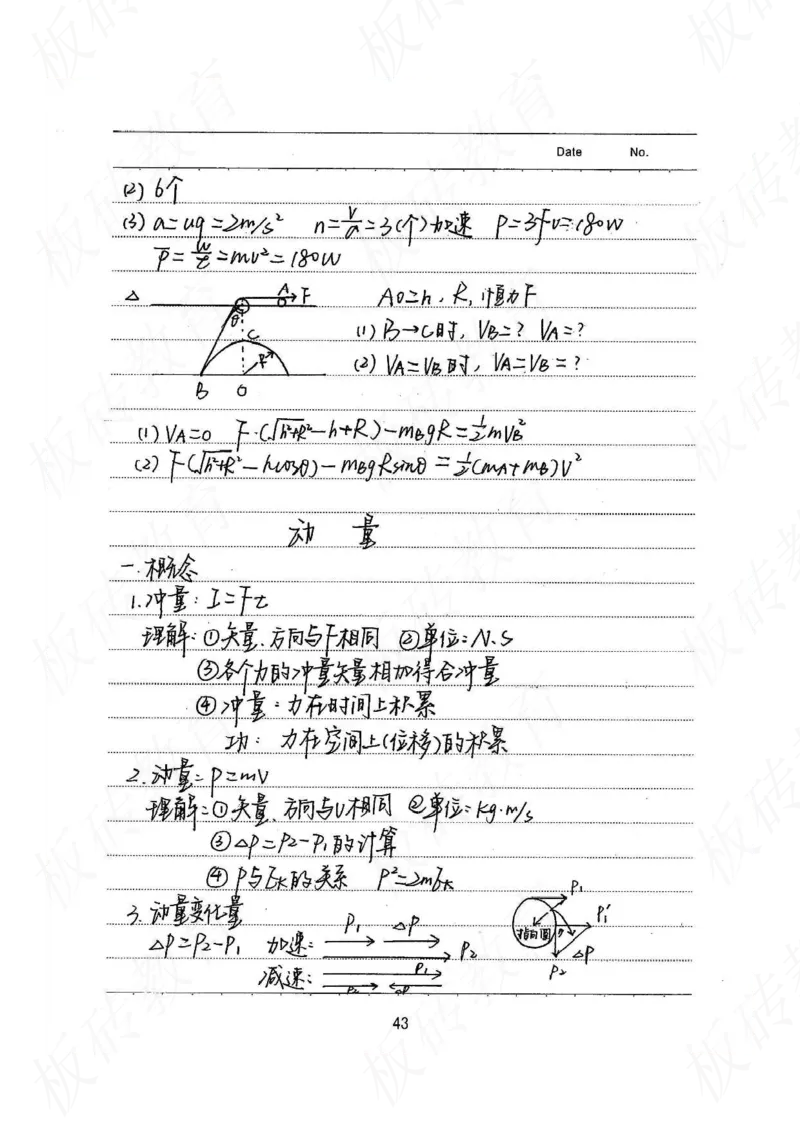 Date No.
(2) 6个
(3) a=ug=2m/s² n=V/a=3(个)加速 P=3fv=180W
P̄=W/t=mv²=180W
△ A F AO=h, R, 恒力F
θ C (1) B→C时, VB=? VA=?
R (2) VA=VB时, VA=VB=?
B O
(1) VA=0 F·(√h²+R²-h+R)-mBgR=½mVB²
(2) F(√h²+R²-hcosθ)-mBgRsinθ=½(mA+mB)V²
动 量
一.概念
1.冲量: I=Ft
理解: ①矢量.方向与F相同 ②单位: N.S
③各个力的冲量矢量相加得合冲量
④冲量: 力在时间上积累
功: 力在空间上(位移)的积累
2.动量: P=mV
理解: ①矢量.方向与V相同 ②单位: kg·m/s
③△P=P2-P1的计算
④P与Ek的关系 P²=2mEk
3.动量变化量
△P=P2-P1 加速: P1 △P P2
减速: P1 P2 △P
P1 P1′ 指向圆 P2 △P
43
板砖教育